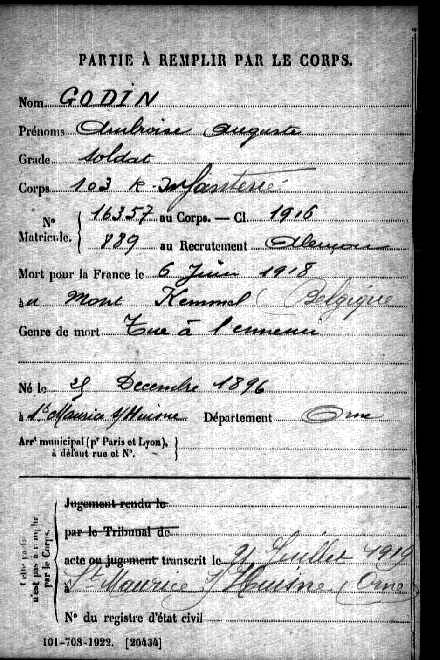 PARTIE À REMPLIR PAR LE CORPS.
Nom GODIN
Prénoms Ambroise Auguste
Grade Soldat
Corps 103 R. Infanterie
N° Matricule. { 16357 au Corps. — Cl. 1916
889 au Recrutement Alençon
Mort pour la France le 6 Juin 1918
à au Mont Kemmel (Belgique
Genre de mort Tué à l'ennemi
Né le Decembre 1896
à St Maurice s/Huisne Département Orne
Arrt municipal (pr Paris et Lyon), à défaut rue et N°. }
Cette partie n'est pas à remplir par le Corps.
Jugement rendu le
par le Tribunal de
acte ou jugement transcrit le Juillet 1919
à St Maurice s/Huisne (Orne
N° du registre d'état civil
101-708-1922. [20434]